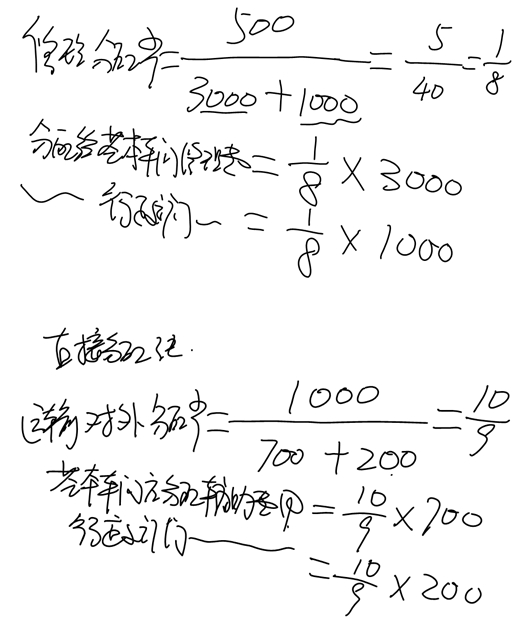 修理分配率=500/(3000+1000)=5/40=1/8
分配给基本车间修理费=1/8×3000
行政部门=1/8×1000
直接分配法.
运输对外分配率=1000/(700+200)=10/9
基本车间应分配辅助费用=10/9×700
行政部门=10/9×200